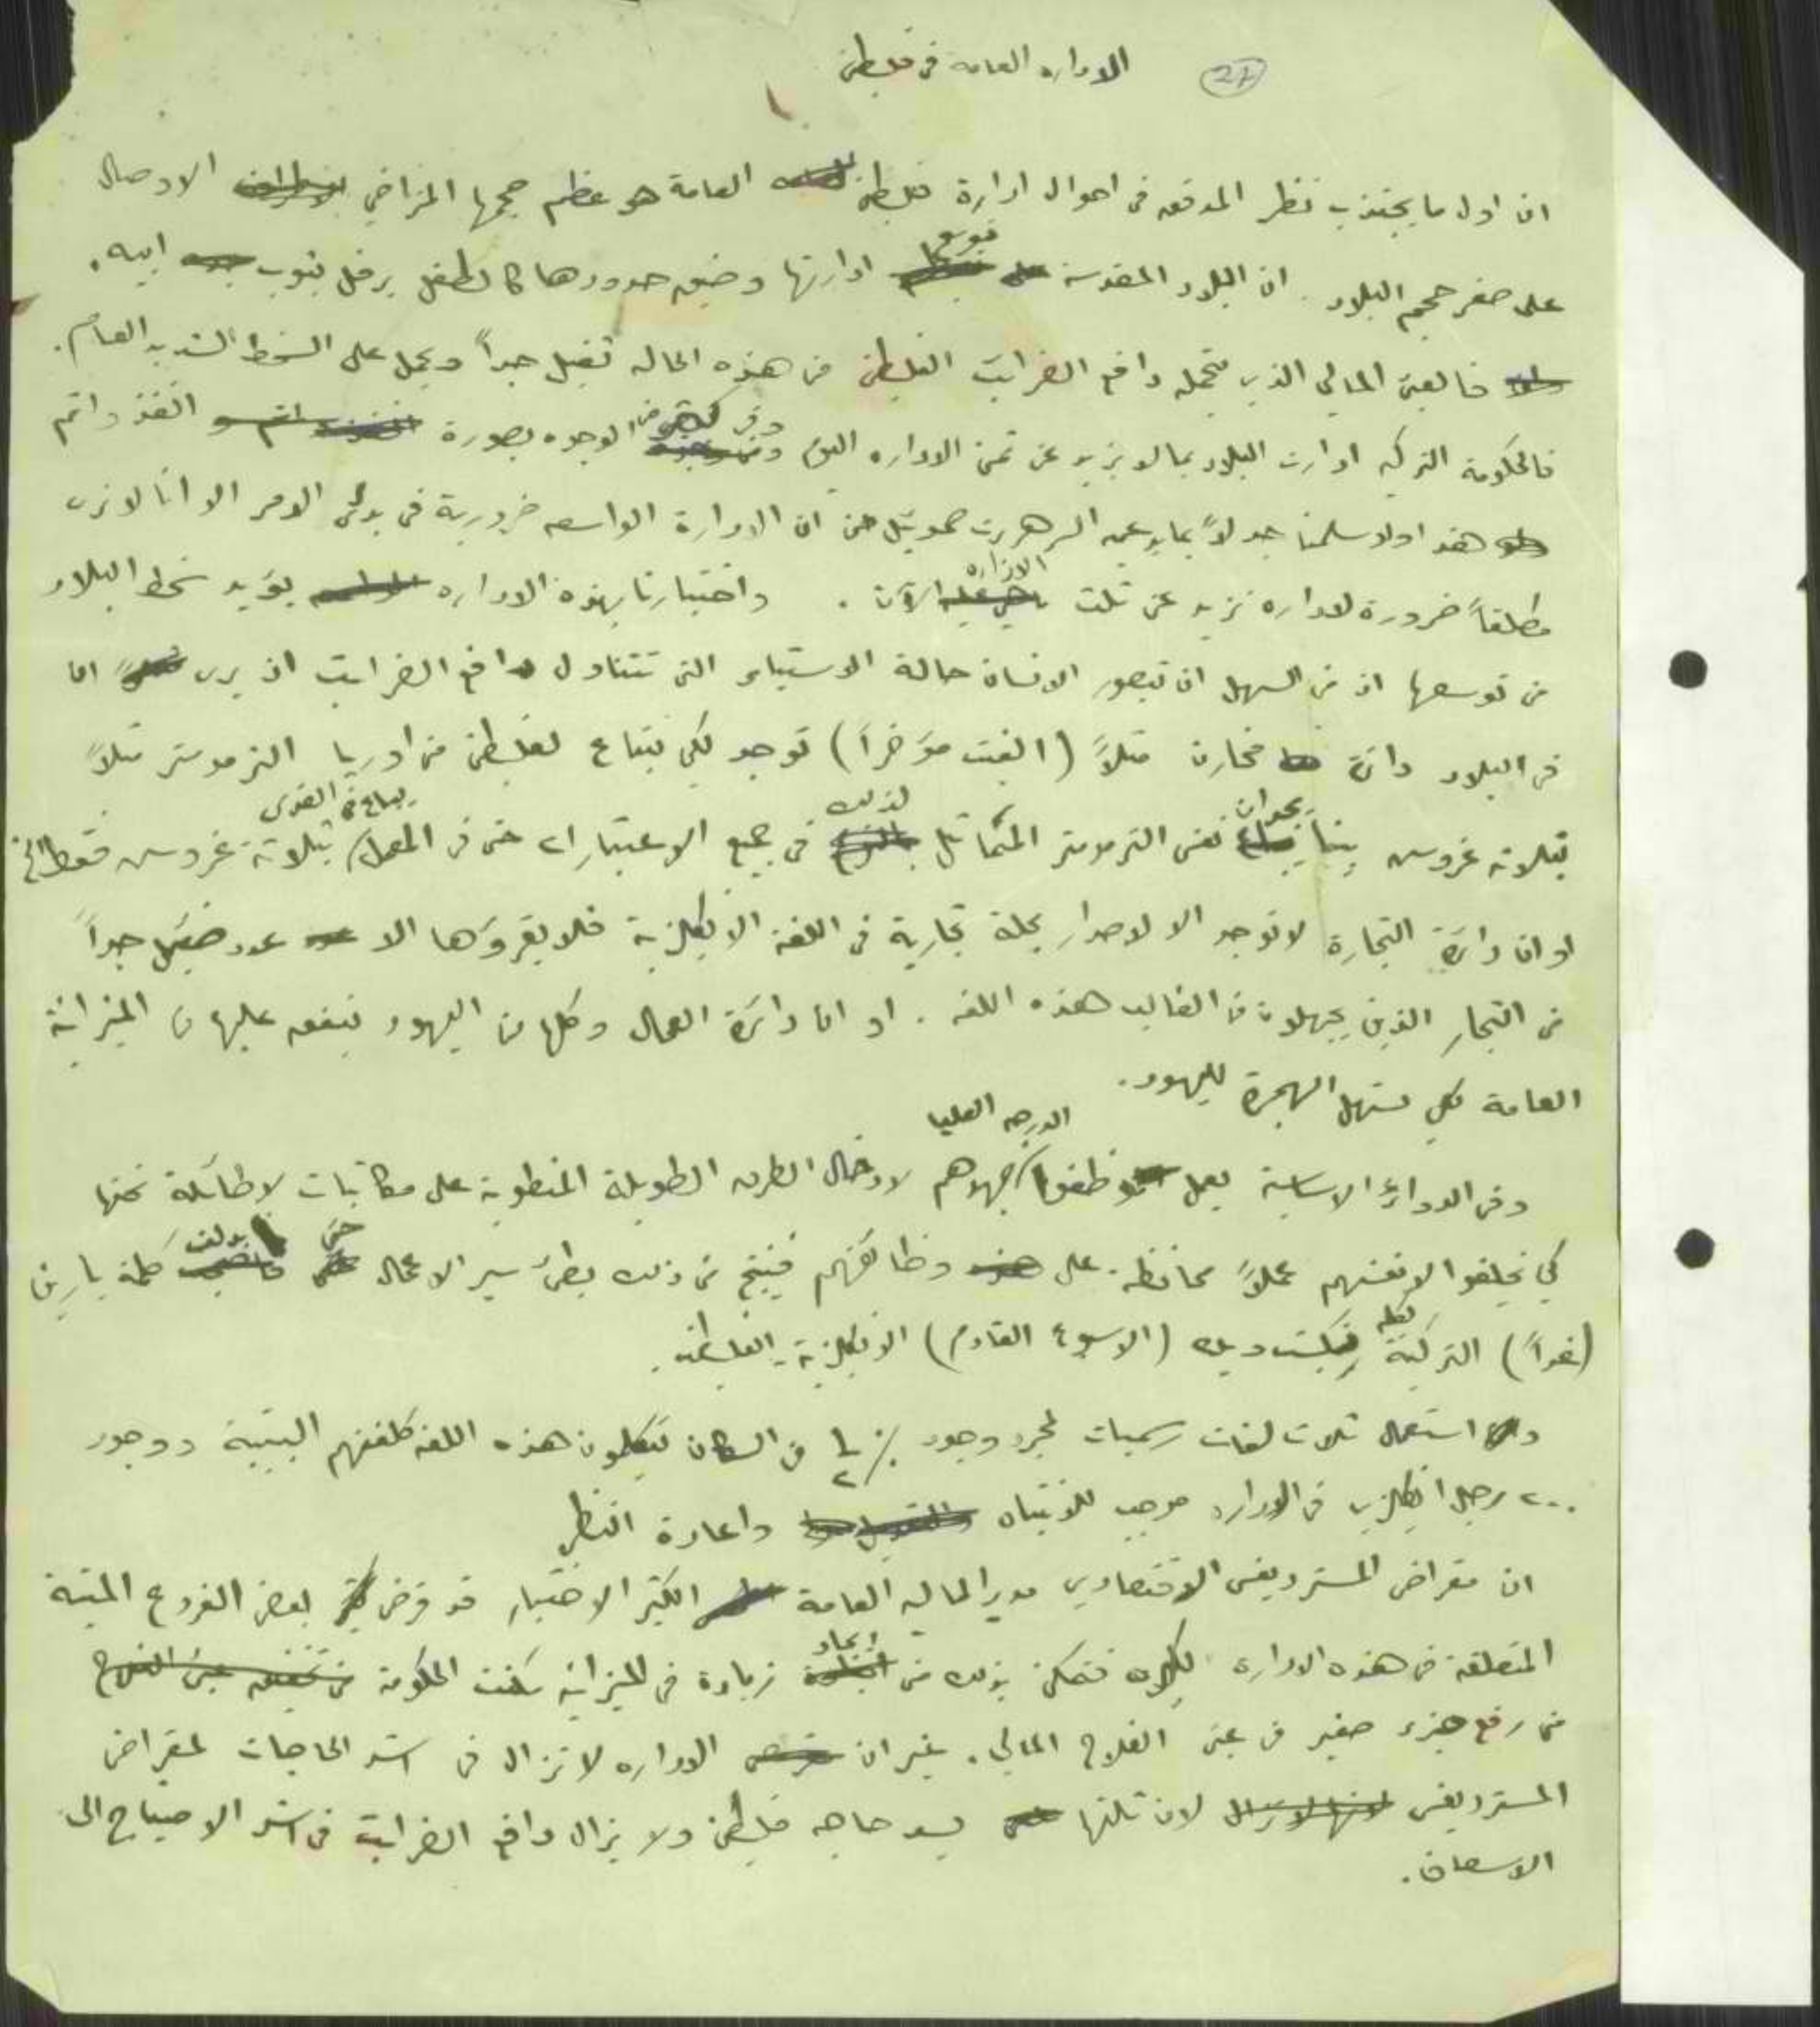 27
الاداره العامه في فلسطين
ان اول ما يجتذب نظر المدقق في احوال ادارة فلسطين العامة هو عظم حجمها المتراخي الاوصال
على صغر حجم البلاد. ان البلاد المقدسة بتوسع ادارتها وضيق حدودها كالطفل يرفل بثوب ابيه.
فالعبء المالي الذي يتحمله دافع الضرائب الفلسطيني في هذه الحاله ثقيل جداً ويحمل على السخط الشديد العام.
فالحكومة التركيه ادارت البلاد بما لا يزيد عن ثمن الاداره اليوم وفي كثير من الوجوه بصورة انفذ واتم
هذا ولو سلمنا جدلاً بما يدعيه السر هربرت صموئيل من ان الادارة الواسعه ضرورية في بدئ الامر الا انا لا نرى
مطلقاً ضرورة لاداره تزيد عن ثلث الاداره الآن. واختبارنا بهذه الاداره يؤيد سخط البلاد
من توسعها اذ من السهل ان يتصور الانسان حالة الاستياء التي تتناول دافع الضرائب اذ يرى ان
في البلاد دائرة مخازن مثلاً (الغيت مؤخراً) توجد لكي تبتاع لفلسطين من اوربا الترمومتر مثلاً
بثلاثة غروس بينا بجوارن نفس الترمومتر المماثل لذلك في جميع الاعتبارات حتى في المعمل يباع في القدس بثلاثة غروس فقط الخ
او ان دائرة التجارة لا توجد الا لاصدار مجلة تجارية في اللغة الانكليزية فلا يقرؤها الا عدد ضئيل جداً
من التجار الذين يجهلون في الغالب هذه اللغه. او ان دائرة العمال وكلها من اليهود ينفق عليها من الميزانية
العامة لكي تسهل الهجرة لليهود.
وفي الدوائر الاساسية يعمل موظفوا الدرجه العليا جهدهم لادخال الطرق الطويلة المنطوية على مكاتبات لا طائلة تحتها
كي يخلقوا لانفسهم عملاً محافظة على وظائفهم فينتج من ذلك بطئ سير الاعمال حتى بدلت كلمة يارين
(غداً) التركية بكلمة نكست ويك (الاسبوع القادم) الانكليزية الفلسطينية.
استعمال ثلاث لغات رسميات لمجرد وجود ١/٢ ٪ من السكان يتكلمون هذه اللغه كلغتهم البيتية ووجود
٢٠٠ رجل انكليزي في الاداره موجب للانتباه واعادة النظر
ان مقراض المستر ديفس الاقتصادي مدير الماليه العامة الكثير الاختبار قد قرض بعض الفروع الميتة
المتعلقه في هذه الاداره فتمكن بذلك من ايجاد زيادة في الميزانيه مكنت الحكومة
من رفع جزء صغير من عبء الفلاح المالي. غير ان الاداره لا تزال في اشد الحاجات لمقراض
المستر ديفس لان ثلثها يسد حاجه فلسطين ولا يزال دافع الضرائب في اشد الاحتياج الى
الاسعاف.